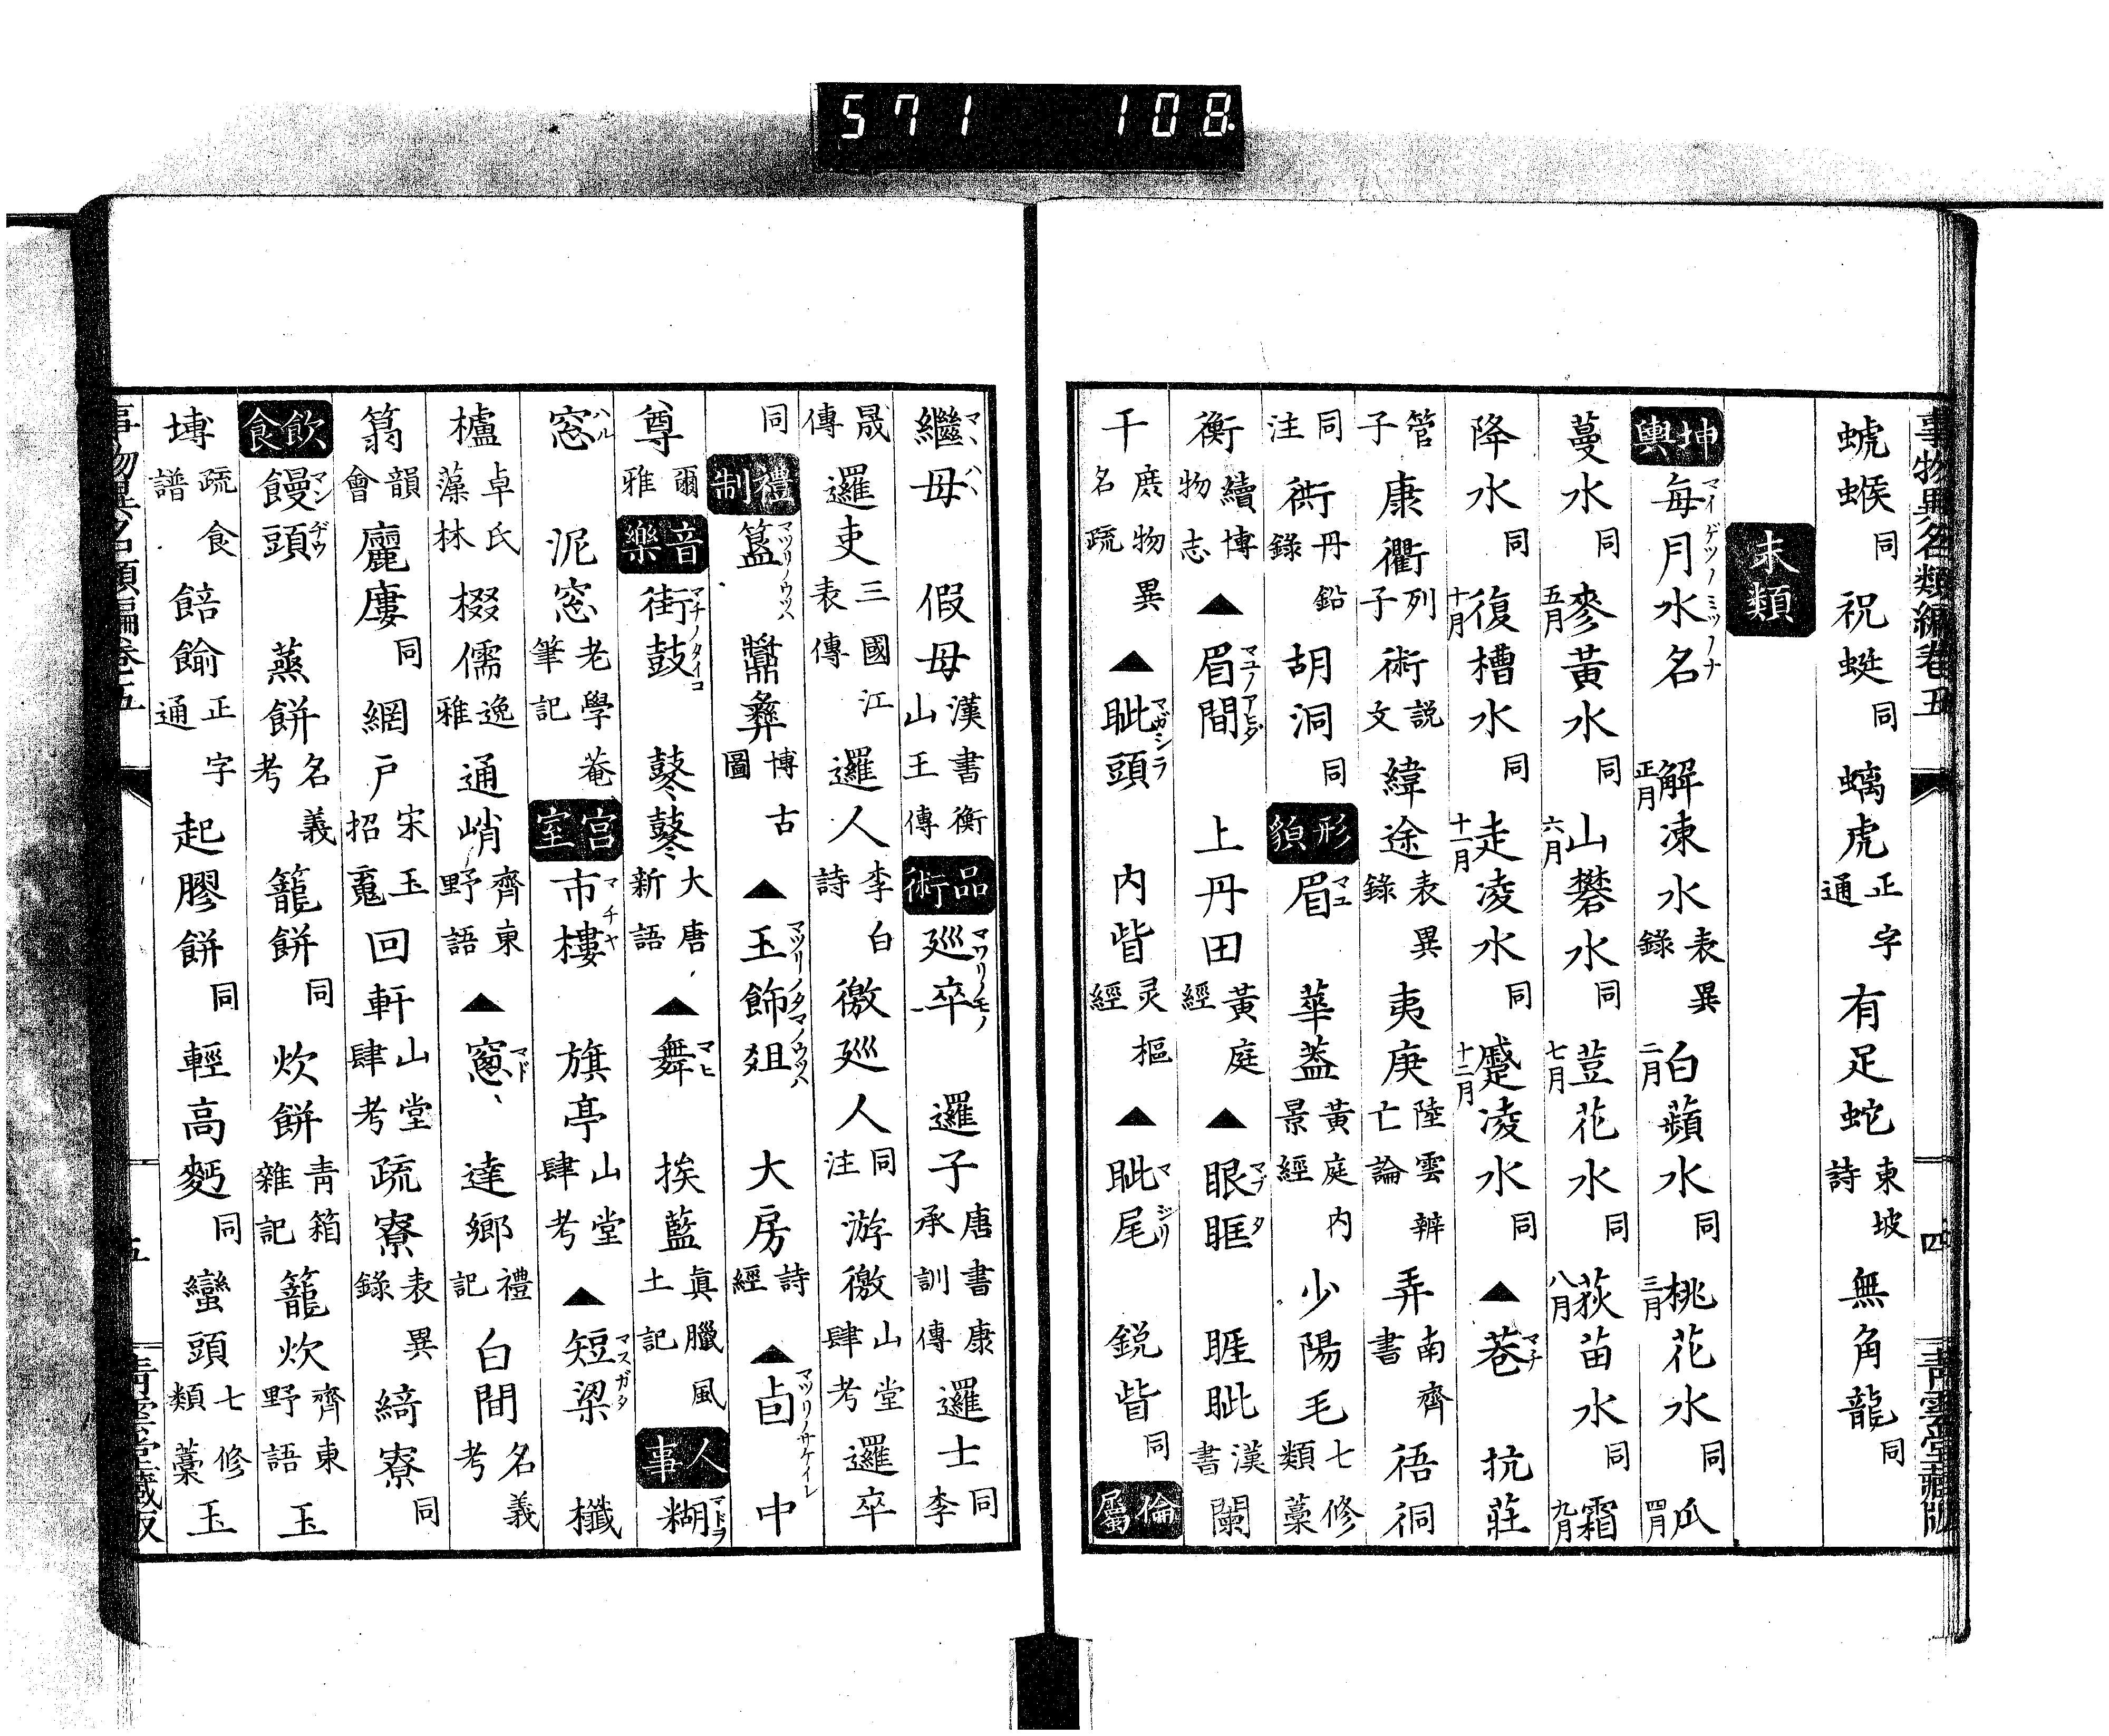 571 108
事物異名類編卷五
四
青雲堂藏版
虠蝬同 祝蜒同 螭虎正字通 有足蛇東坡詩 無角龍同
末類
坤輿 每月水名マイゲツノミヅノナ 解凍水正月表異錄 白蘋水二月同 桃花水三月同 瓜四月
蔓水同 麥黃水五月同 山礬水六月同 荳花水七月同 荻苗水八月同 霜九月
降水同 復槽水十月同 走凌水十一月同 蹙凌水十二月同 ▲巷マチ 抗莊
管子 康衢列子 術說文 緯途表異錄 夷庚陸雲辨亡論 弄南齊書 㕦衕
同注 衖丹鉛錄 胡洞同 形貌 眉マユ 華蓋黃庭內景經 少陽毛七修類藁
衡續博物志 ▲眉間マユノアヒダ 上丹田黃庭經 ▲眼眶マブタ 睚眦漢書 闌
干庶物異名疏 ▲眦頭マガシラ 內眥灵樞經 ▲眦尾マジリ 銳眥同 倫屬
繼母マヽハヽ 假母漢書衡山王傳 品術 廵卒マワリノモノ 邏子唐書康承訓傳 邏士同李
晟傳 邏吏三國江表傳 邏人李白詩 徼廵人同注 游徼山堂肆考 邏卒
同 禮制 簋マツリノウツハ 鼎彝博古圖 ▲玉飾爼マツリノタマノウツハ 大房詩經 ▲卣マツリノサケイレ 中
尊爾雅 音樂 街鼓マチノタイコ 鼕鼕大唐新語 ▲舞マヒ 挨藍眞臘風土記 人事 糊マドヲ
窓ハル 泥窓老學菴筆記 宮室 市樓マチヤ 旗亭山堂肆考 ▲短梁マスガタ 櫼
櫨卓氏藻林 棳儒逸雅 通峭齊東野語 ▲窻マド 達鄉禮記 白間名義考
篘韻會 廲廔同 網戶宋玉招䰟 回軒山堂肆考 疏寮表異錄 綺寮同
飲食 饅頭マンヂウ 蒸餅名義考 籠餅同 炊餅青箱雜記 籠炊齊東野語 玉
塼疏食譜 餢飳正字通 起膠餅同 輕高麪同 蠻頭七修類藁 玉
事物異名類編卷五
五
青雲堂藏版